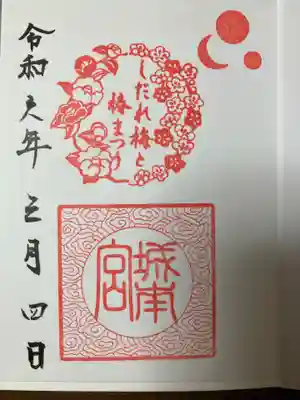 しだれ梅と
椿まつり
城南
宮
令和六年三月四日